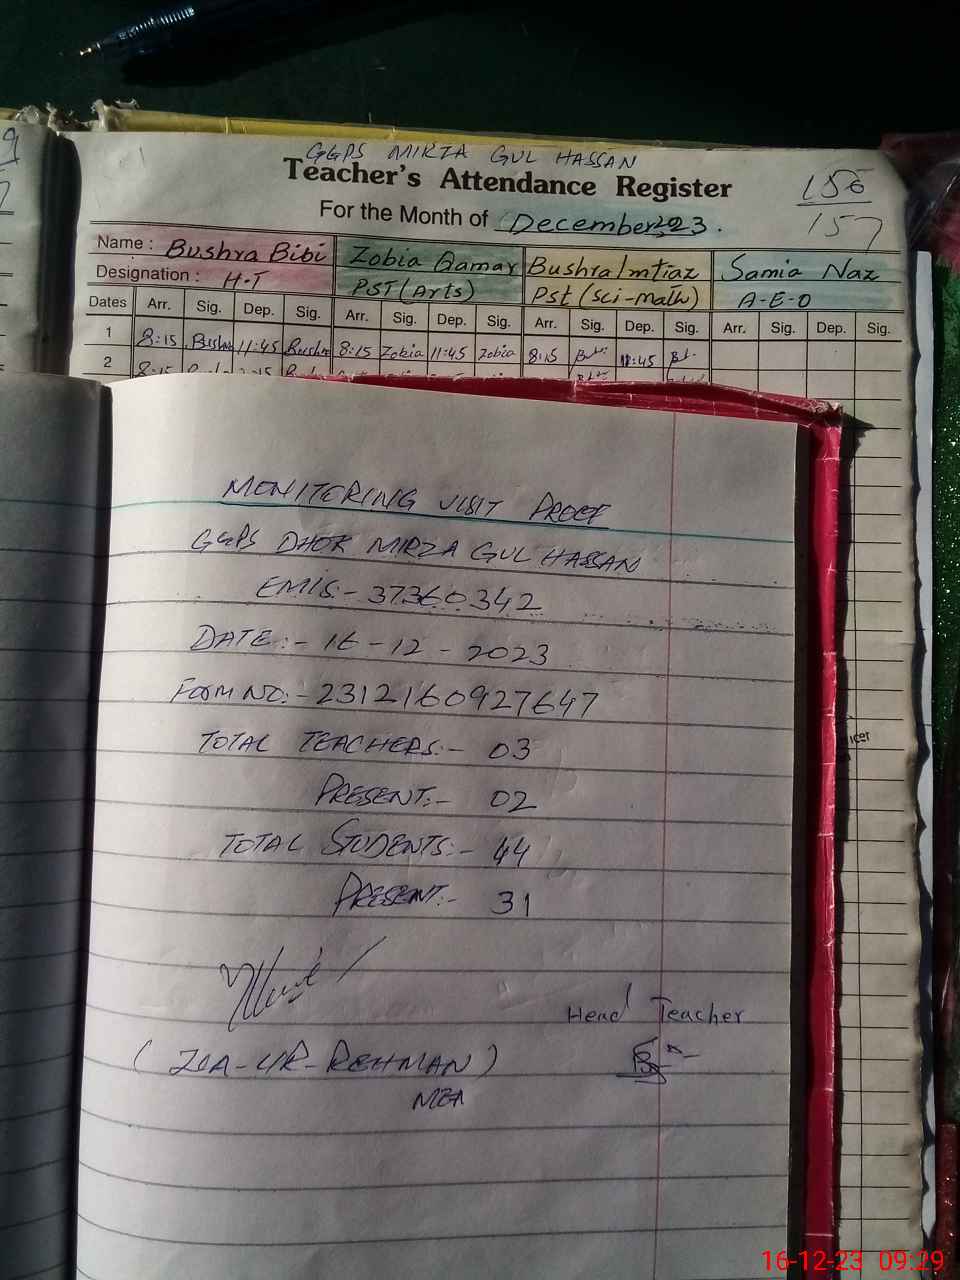 GGPS MIRZA GUL HASSAN
Teacher's Attendance Register
156
157
For the Month of December 2023.
Name : Bushra Bibi Zobia Qamar Bushra Imtiaz Samia Naz
Designation : H.T PST (Arts) Pst (sci-math) A-E-O
Dates Arr. Sig. Dep. Sig. Arr. Sig. Dep. Sig. Arr. Sig. Dep. Sig. Arr. Sig. Dep. Sig.
1 8:15 Bushra 11:45 Bushra 8:15 Zobia 11:45 Zobia 8:15 11:45
2 8:15
MONITORING VISIT PROOF
GGPS DHOK MIRZA GUL HASSAN
EMIS:- 37360342
DATE:- 16-12-2023
FORM NO:- 2312160927647
TOTAL TEACHERS:- 03
PRESENT:- 02
TOTAL STUDENTS:- 44
PRESENT:- 31
Head Teacher
(ZIA-UR-REHMAN)
MEA
16-12-23 09:29